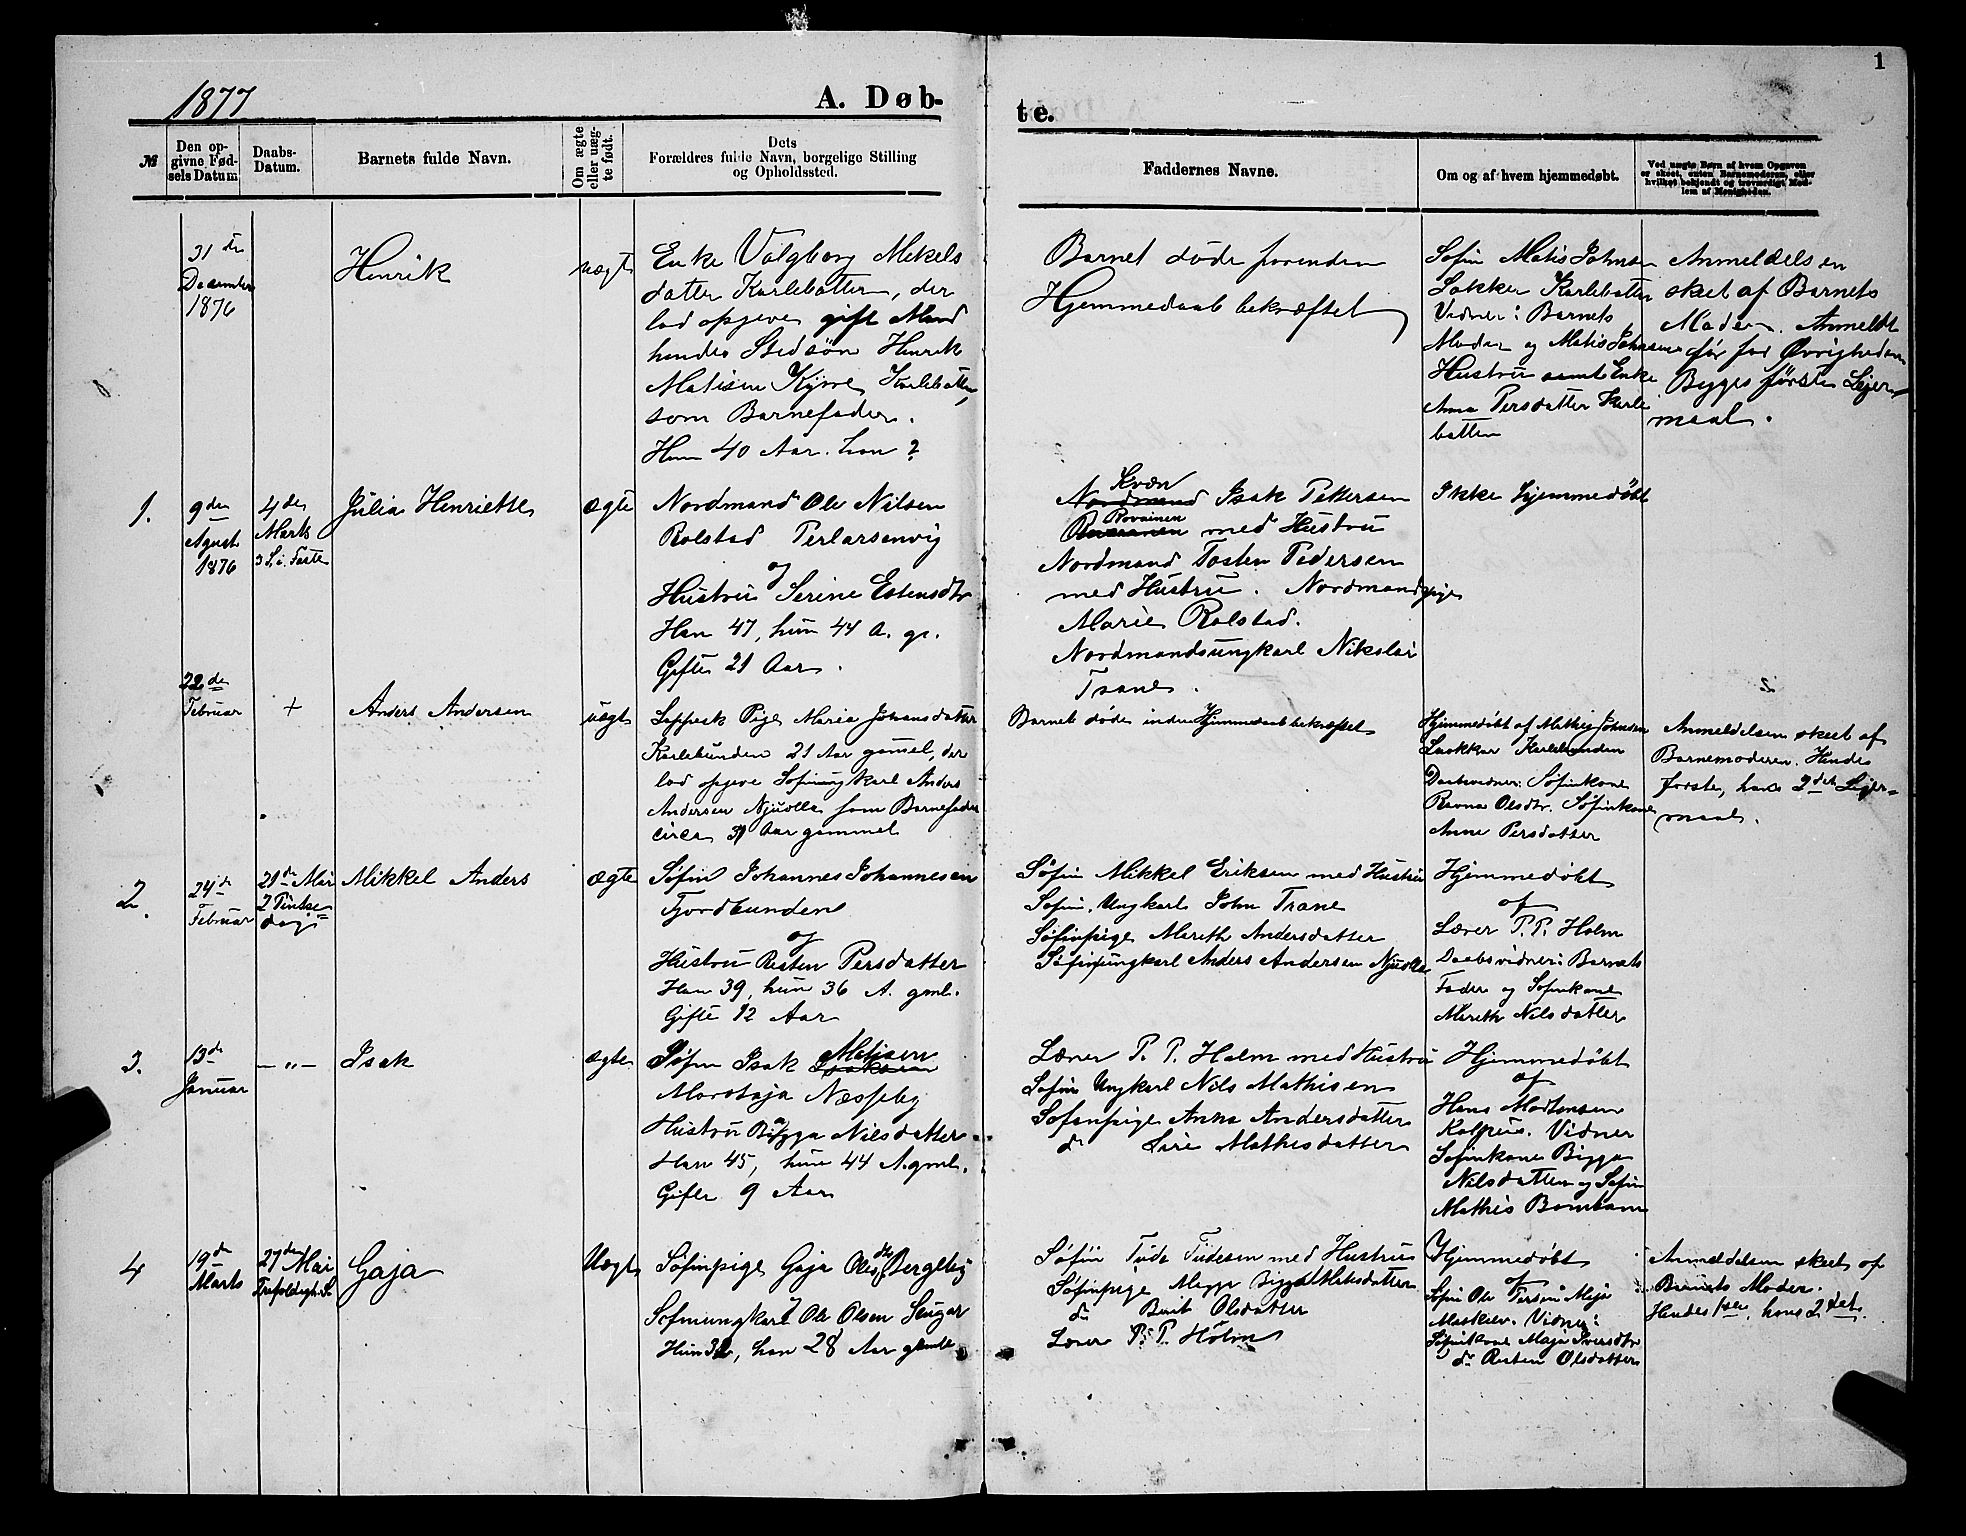 1877
A. Døb-
te.
1
№
Den op-
givne Fød-
sels Datum
Daabs-
Datum.
Barnets fulde Navn.
Om ægte
eller uæg-
te født.
Dets
Forældres fulde Navn, borgelige Stilling
og Opholdssted.
Faddernes Navne.
Om og af hvem hjemmedøbt.
Ved uægte Børn af hvem Opgaven
er skeet, enten Barnemoderen, eller
hvilket bekjendt og troværdigt Med-
lem af Menigheden.
31te
December
1876
Henrik
uægte
Enke Valgborg Mikels
datter Karlebotten, der
lod opgive gift Mand
hendes Stedsön Henrik
Matisen Kjøre Karlebotten,
som Barnefader.
Hun 40 Aar. han ?
Barnet døde forinden
Hjemmedaab bekræftet
Søfin Matis Johnsen
Lakker Karlebotten
Vidner: Barnets
Moder og Matis Johnsens
Hustru samt Enke
Anna Persdatter Karle
botten
Anmeldelsen
skeet af Barnets
Moder. Anmeldt
før for Øvrigheden
Begges første Lejer
maal.
1.
9den
Agust
1876
4de
Marts
3 S. i Faste
Julia Henriette
ægte
Nordmand Ole Nilsen
Rolstad Perlarsenvig
og
Hustru Serine Estensdtr
Han 47, hun 44 A. gr.
Gifte 21 Aar.
Kvæn
Nordmand Isak Pettersen
Rovainen
med Hustru
Nordmand Tosten Pedersen
med Hustru. Nordmandspige
Marie Rolstad.
Nordmandsungkarl Nikolai
Trane.
Ikke hjemmedøbt
22de
Februar
+
Anders Andersen
uægt
Lappisk Pige Maria Johansdatter
Karlebunden 21 Aar gamel, der
lod opgive Søfinungkarl Anders
Andersen Njuolla som Barnefader
circa 31 Aar gammel
Barnet døde inden Hjemmedaab bekræftet
Hjemmedøbt af Mathis Johnsen
Laokkar Karlebunden
Daabsvidner: Søfinkone
Ravna Olsdtr. Søfinkone
Anne Persdatter
Anmeldelsen skeet af
Barnemoderen. Hendes
første, hans 2det Lejer=
maal.
2.
24de
Februar
21de Mai
2 Pintse
dag
Mikkel Anders
ægte
Søfin Johannes Johannesen
Fjordbunden
og
Hustru Risten Persdatter
Han 39, hun 36 A. gml.
Gifte 12 Aar
Søfin Mikkel Eriksen med Hustru
Søfin. Ungkarl John Trane
Søfinpige Marith Andersdatter
Søfinungkarl Anders Andersen Njuolla
Hjemmedøbt
af
Lærer P. P. Holm
Daabsvidner: Barnets
Fader og Søfinkone
Marith Nilsdatter
3.
13de
Januar
— „ —
Isak
ægte
Matisen
Søfin Isak Isaksen
Mortsja Næsseby
Hustru Bigga Nilsdatter
Han 45, hun 44 A. gml.
Gifte 9 Aar
Lærer P. P. Holm med Hustru
Søfin Ungkarl Nils Mathisen
Søfinpige Anna Andersdatter
do Siri Mathisdatter
Hjemmedøbt
af
Hans Mortensen
Kalpus. Vidner
Søfinkone Bigga
Nilsdatter og Søfin
Mathis Bomban
4
19de
Marts
27de Mai
Trefoldigh. S.
Gaja
Uægte
Søfinpige Gaja Olsdtr Bergeby
Søfinungkarl Ole Olsen Slugar
Hun 32, han 28 Aar gamle
Søfin Tude Tudesen med Hustru
Søfinpige Magga Bigga Matisdatter
do Birit Olsdatter
Lærer P. P. Holm
Hjemmedøbt
af
Søfin Ole Persen Meja
Maskelv. Vidner:
Søfinkone Maja Iversdtr
do Risten Olsdatter
Anmeldelsen skeet af
Barnets Moder.
Hendes 1ste, hans 2det.